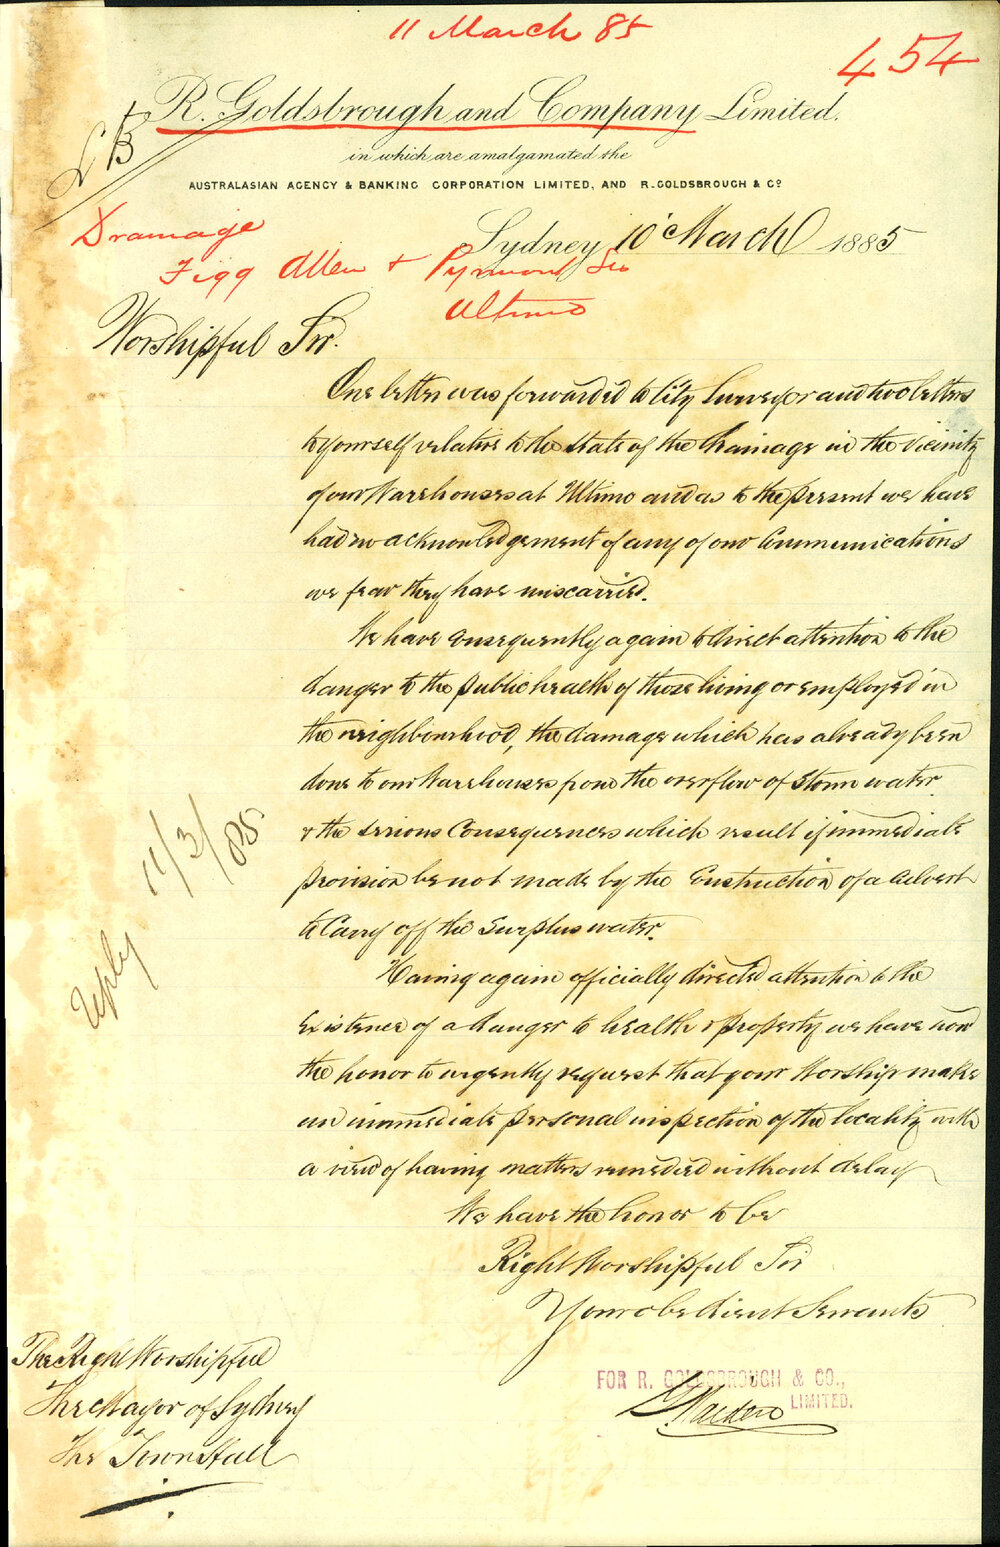 11 March 85
454
R. Goldsbrough and Company Limited.
in which are amalgamated the
AUSTRALASIAN AGENCY & BANKING CORPORATION LIMITED, AND R. GOLDSBROUGH & Co
LB
Sydney 10 March 1885
Drainage
Figg Allen & Pyrmont Sts
Ultimo
Worshipful Sir.
One letter was forwarded to City Surveyor and two letters
to yourself relative to the State of the Drainage in the vicinity
of our Warehouses at Ultimo and as to the present we have
had no acknowledgement of any of our Communications
we fear they have miscarried.
We have Consequently again to direct attention to the
danger to the public health of those living or employed in
the neighbourhood, the damage which has already been
done to our Warehouses from the overflow of Storm water
& the serious Consequences which result if immediate
provision be not made by the Construction of a Culvert
to Carry off the Surplus water.
Having again officially directed attention to the
Existence of a danger to health & property we have now
the honor to urgently request that your Worship make
an immediate personal inspection of the locality with
a view of having matters remedied without delay
We have the honor to be
Right Worshipful Sir
Your obedient Servants
FOR R. GOLDSBROUGH & CO.,
LIMITED.
The Right Worshipful
The Mayor of Sydney
The Town Hall
Reply 11/3/85